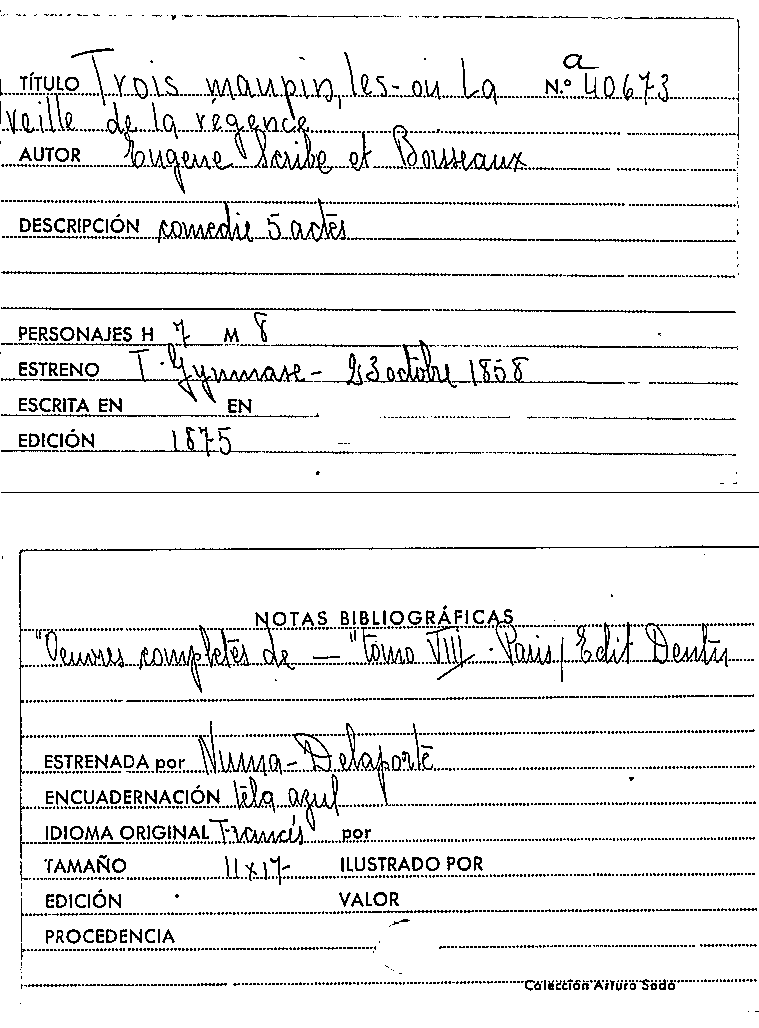 a
TÍTULO Trois maupin, les- ou La N.º 40673
veille de la régence
AUTOR Eugene Scribe et Boisseaux
DESCRIPCIÓN comedie 5 actes
PERSONAJES H 7 M 8
ESTRENO T. Gymnase - 23 octobre 1858
ESCRITA EN EN
EDICIÓN 1875
NOTAS BIBLIOGRÁFICAS
"Oeuvres completes de — " tomo VIII - Paris / Edit Dentu
ESTRENADA por Numa - Delaporte
ENCUADERNACIÓN tela azul
IDIOMA ORIGINAL Francés por
TAMAÑO 11x17 ILUSTRADO POR
EDICIÓN VALOR
PROCEDENCIA
Colección Arturo Sedó